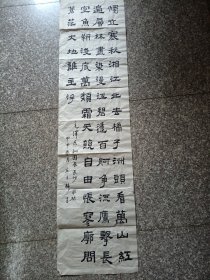 獨立寒秋湘江北去橘子洲頭看萬山紅
遍層林盡染漫江碧透百舸爭流鷹擊長
空魚翔淺底萬類霜天競自由悵寥廓問
蒼茫大地誰主
毛澤東